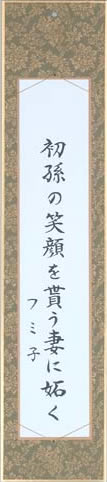 初孫の笑顔を貰う妻に妬く
フミ子